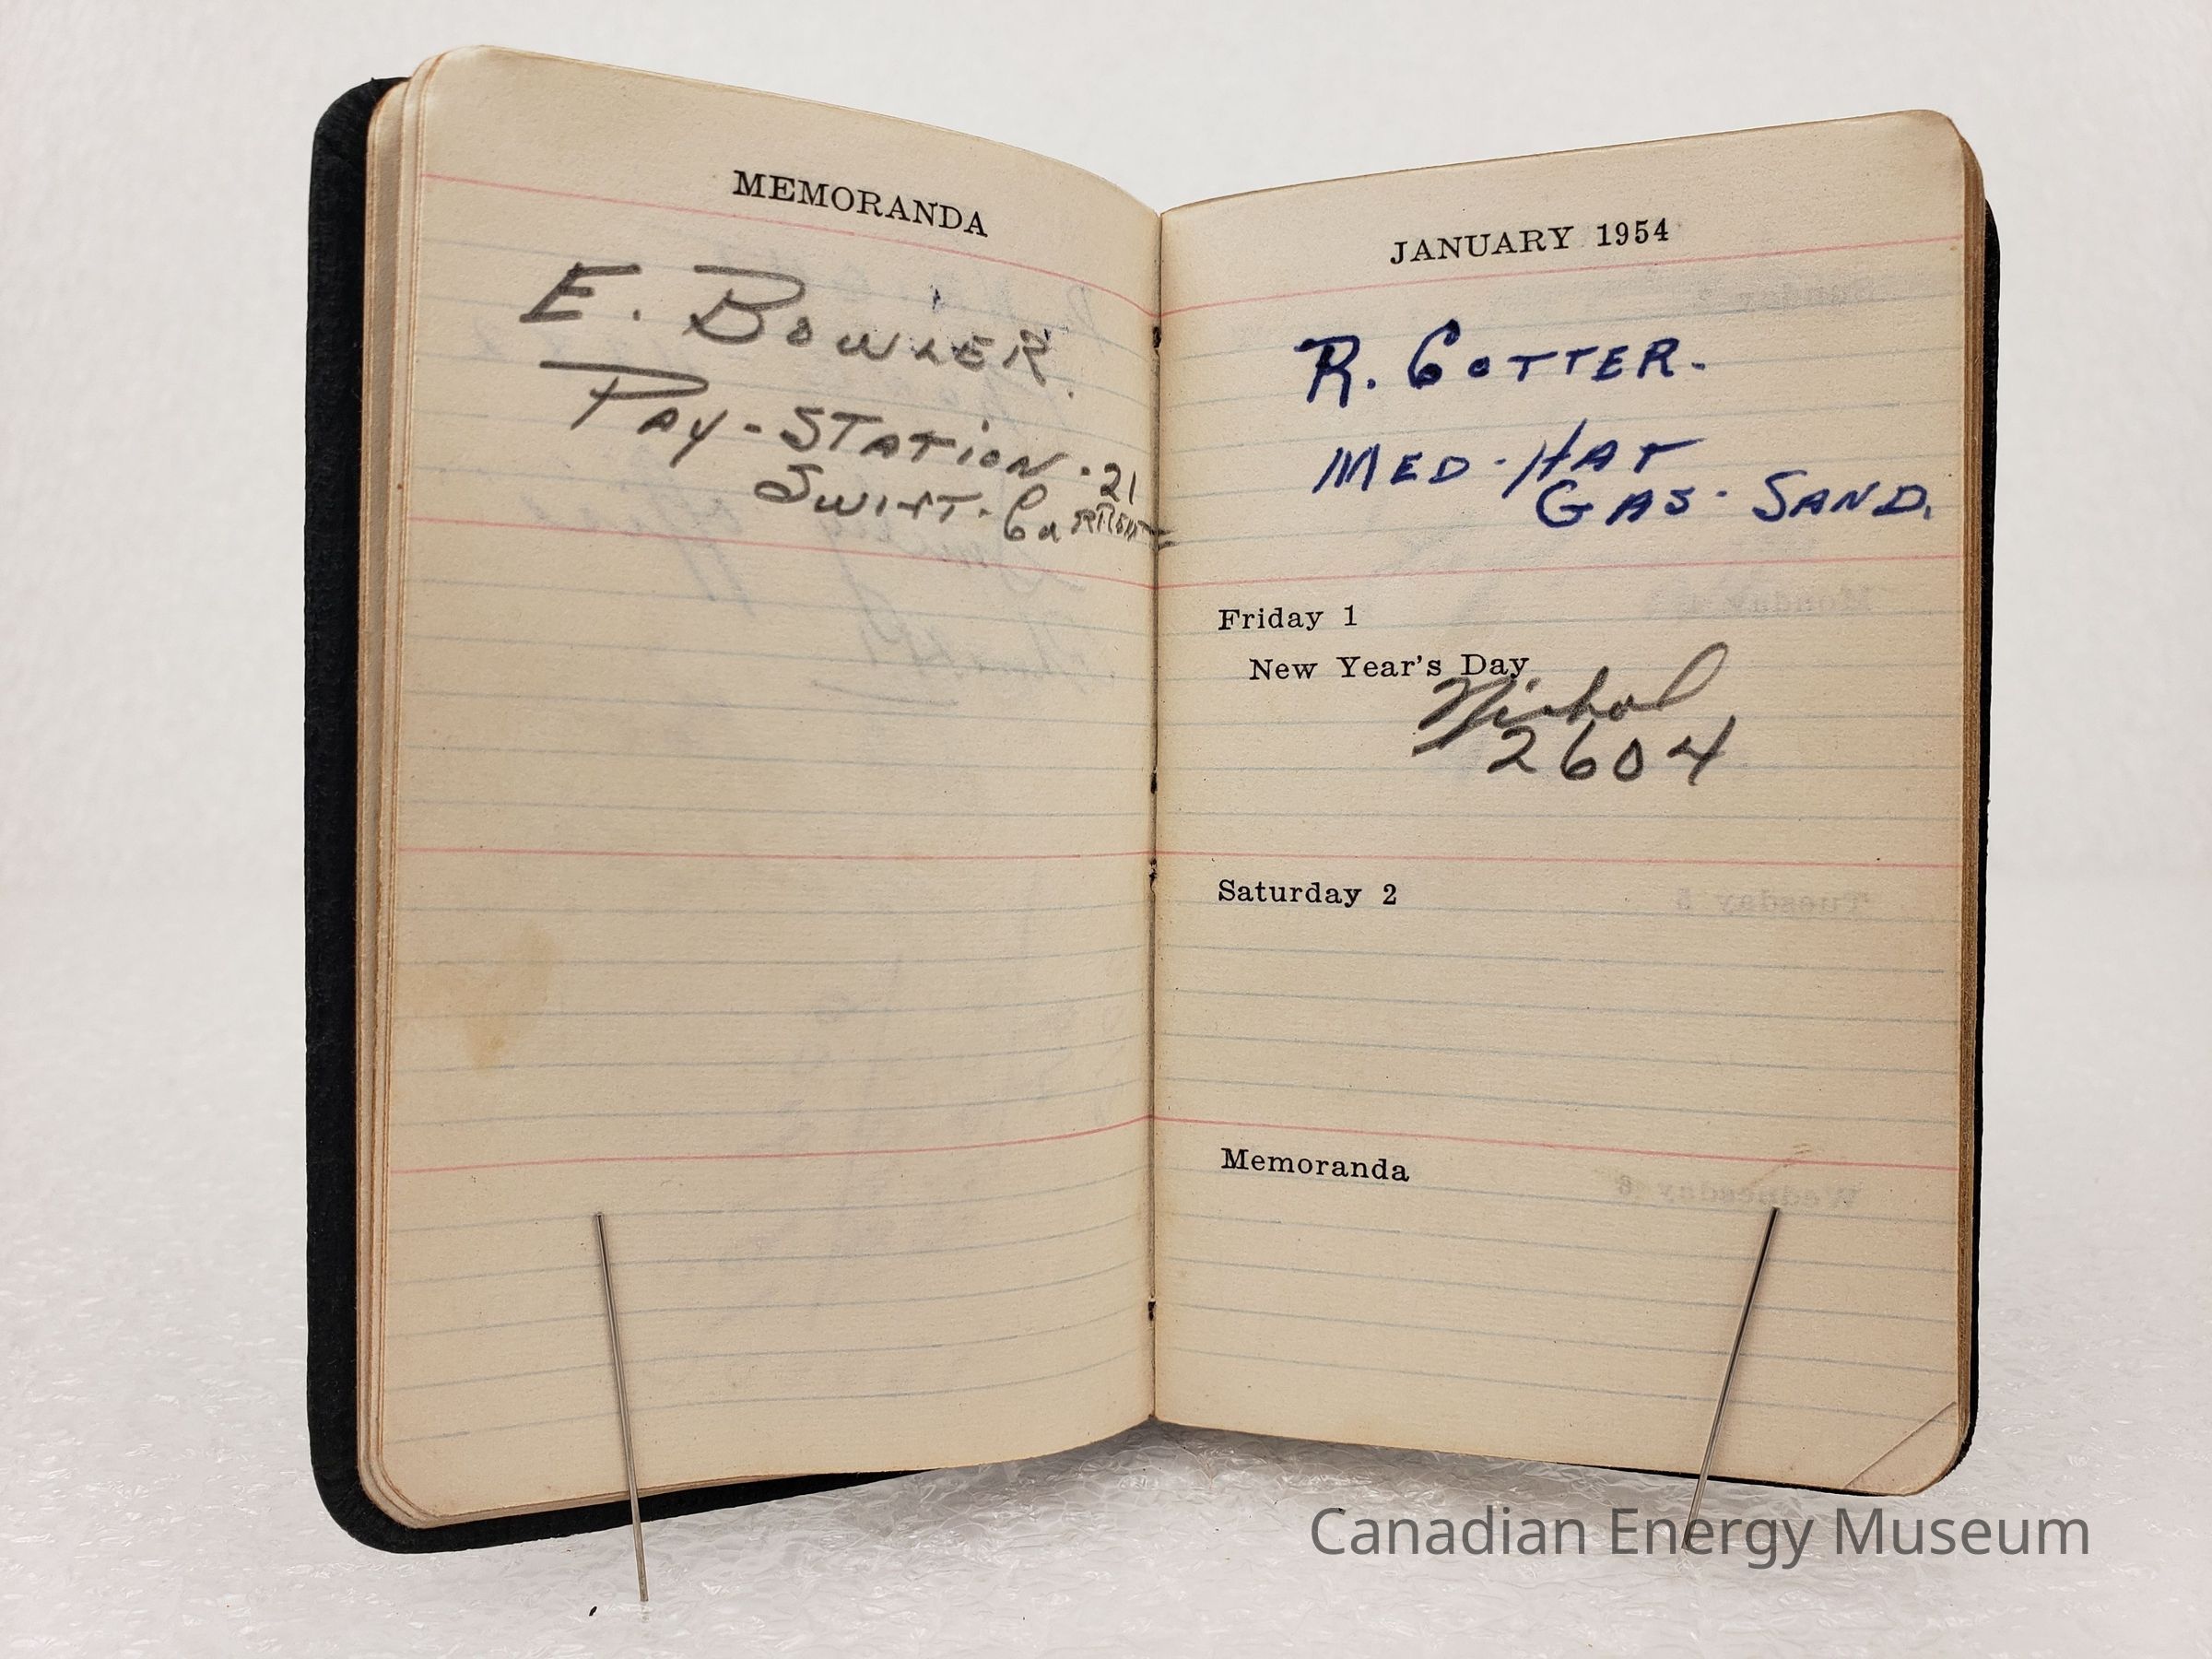 MEMORANDA
E. BOWLER.
PAY-STATION. 21
SWIFT. CURRENT
JANUARY 1954
R. COTTER.
MED. HAT
GAS. SAND.
Friday 1
New Year's Day
Nichol
2604
Saturday 2
Memoranda
Canadian Energy Museum